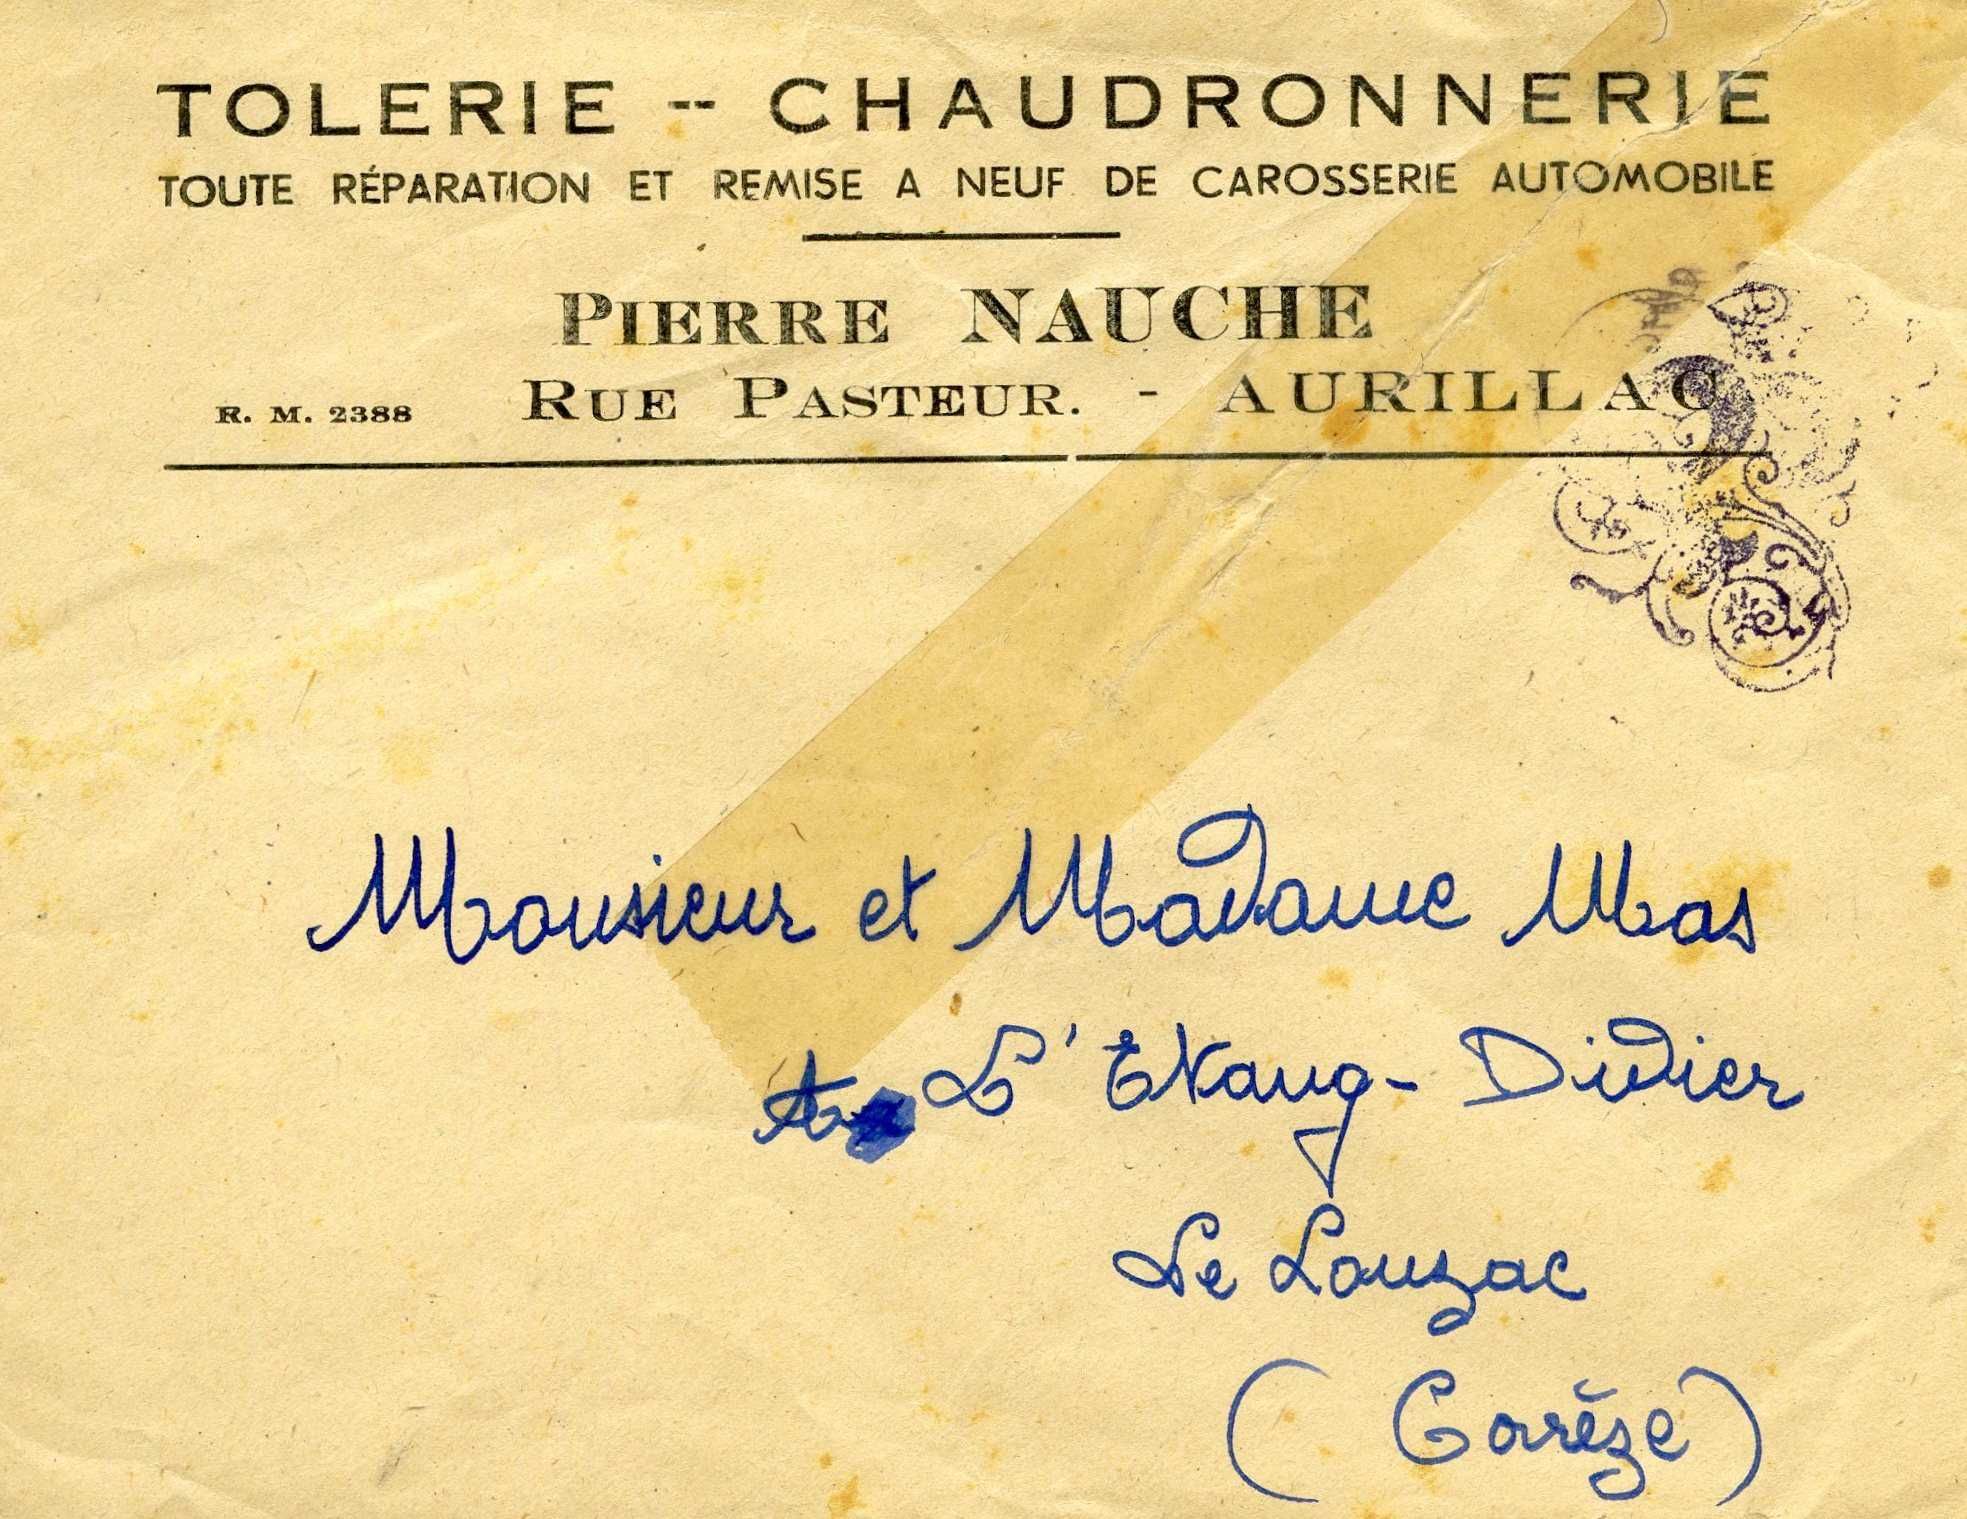 TOLERIE -- CHAUDRONNERIE
TOUTE RÉPARATION ET REMISE A NEUF DE CAROSSERIE AUTOMOBILE
PIERRE NAUCHE
R. M. 2388 RUE PASTEUR. - AURILLAC
Monsieur et Madame Mas
A L'Etang-Didier
Le Louzac
(Corrèze)